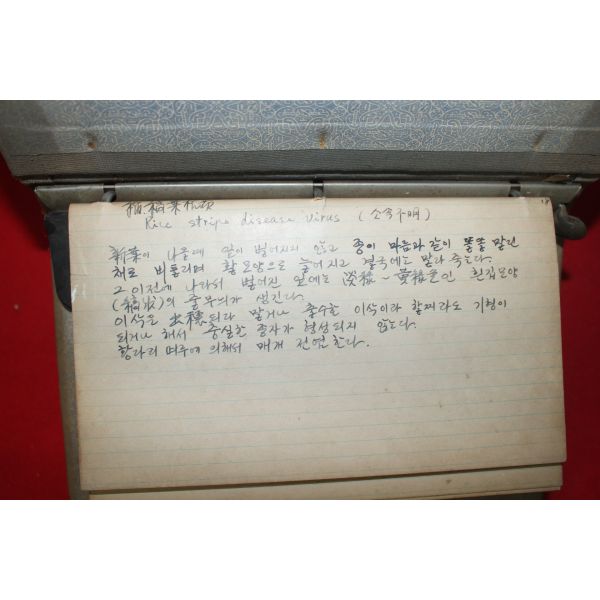 Rice stripe disease virus (소속不明)
新葉이 나올때 잎이 벌어지지 않고 종이 마음과 같이 똘똘 말린
채로 비틀리며 활모양으로 늘어지고 결국에는 말라 죽는다.
그 이전에 나와서 벌어진 잎에는 淡綠~黃綠色인
의 줄무늬가 생긴다.
이삭은 出穗되다 말거나 출수한 이삭이라 할찌라도 기형이
되거나 해서 충실한 종자가 형성되지 않는다.
의해서 매개 전염한다.